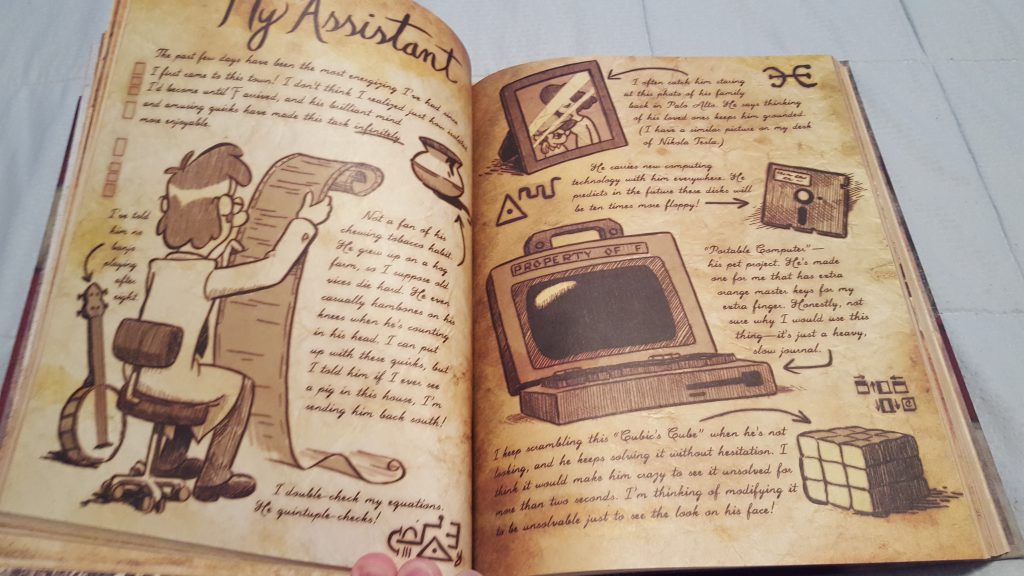 My Assistant
The past few days have been the most energizing I've had since
I first came to this town! I don't think I realized just how
I'd become until F arrived, and his brilliant mind
and amusing quirks have made this task infinitely
more enjoyable.
I've told
him no
banjo
playing
after
eight.
Not a fan of his
chewing tobacco habit.
He grew up on a hog
farm, so I suppose old
vices die hard. He even
casually hambones on his
knees when he's counting
in his head. I can put
up with these quirks, but
I told him if I ever see
a pig in this house, I'm
sending him back south!
I double-check my equations.
He quintuple-checks!
I often catch him staring
at this photo of his family
back in Palo Alto. He says thinking
of his loved ones keeps him grounded.
(I have a similar picture on my desk
of Nikola Tesla.)
He carries new computing
technology with him everywhere. He
predicts in the future these disks will
be ten times more floppy!
PROPERTY OF F
"Portable Computer"—
his pet project. He's made
one for me that has extra
orange master keys for my
extra finger. Honestly, not
sure why I would use this
thing—it's just a heavy,
slow journal.
I keep scrambling this "Cubic's Cube" when he's not
looking, and he keeps solving it without hesitation. I
think it would make him crazy to see it unsolved for
more than two seconds. I'm thinking of modifying it
to be unsolvable just to see the look on his face!